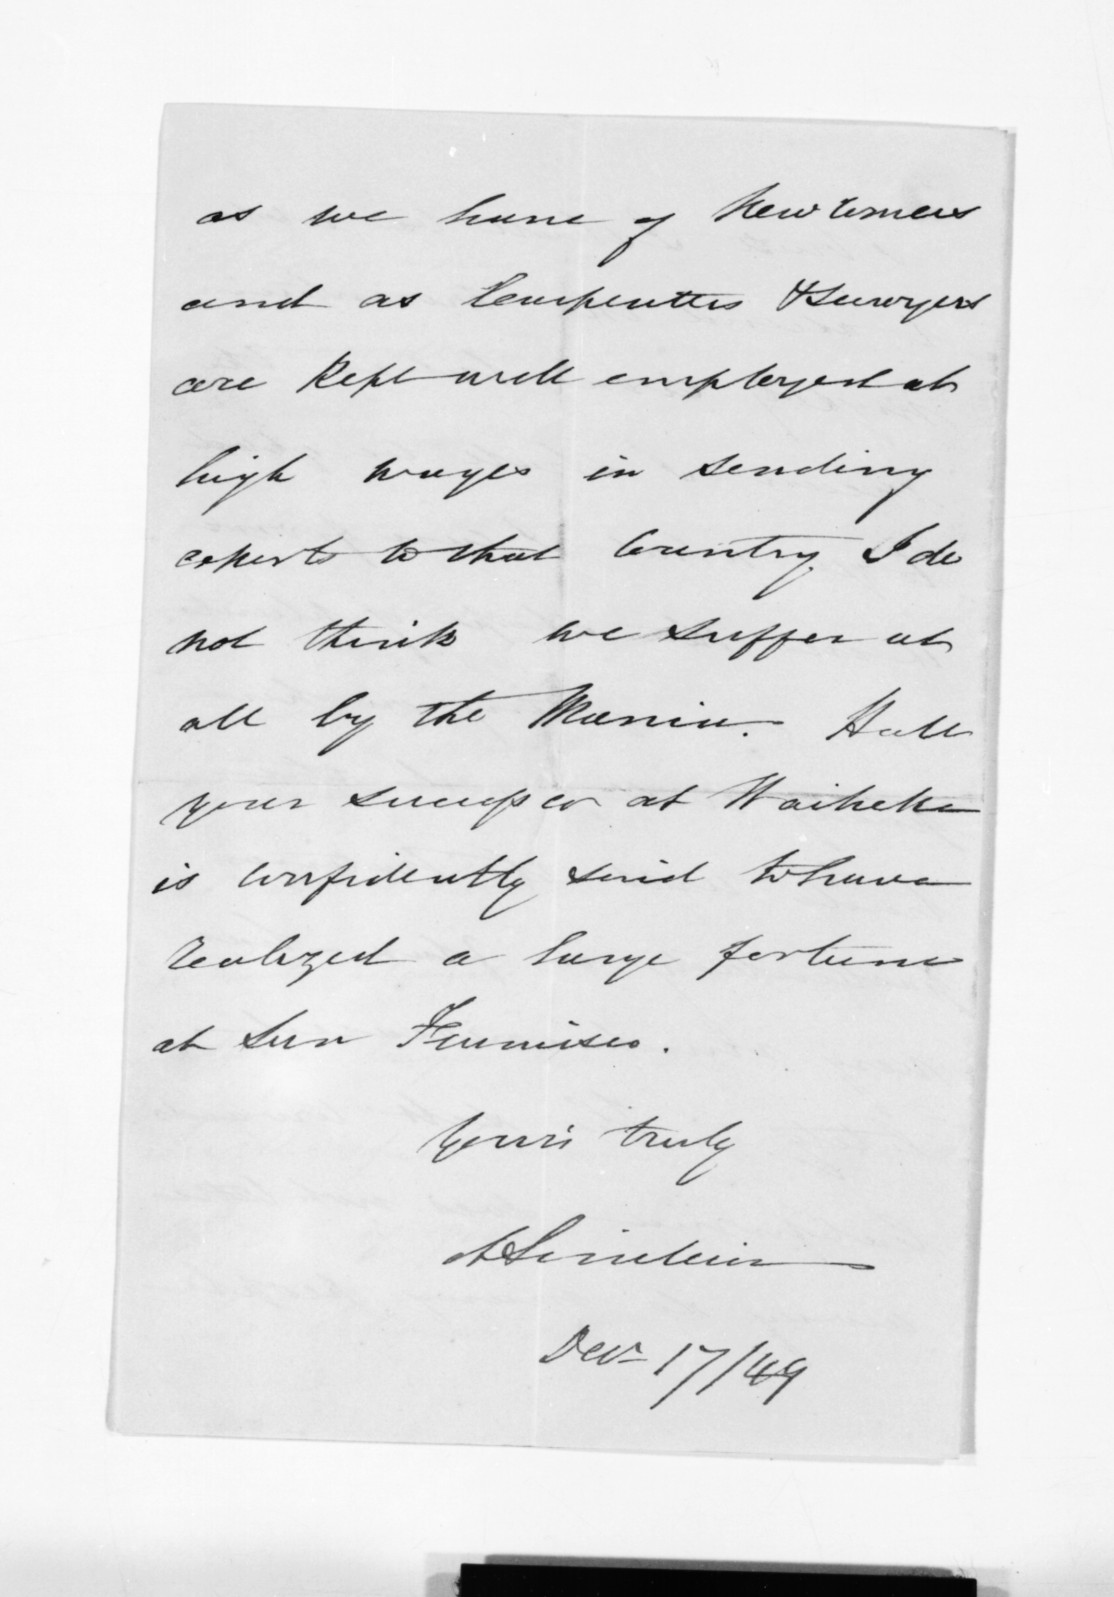 as we have of New Comers
and as Carpenters & Sawyers
are Kept well employed at
high wages in sending
exports to that Country. I do
not think we suffer at
all by the Mania. Hall
your successor at Waiheke
is confidently said to have
realized a large fortune
at San Francisco.
Yours truly
A Sinclair
Decr 17/49